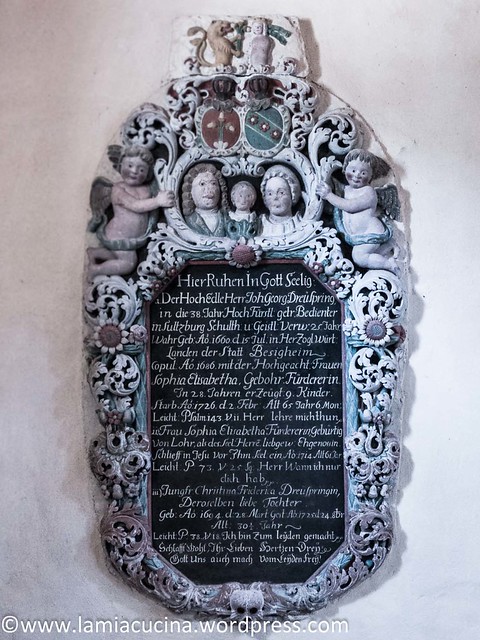 Hier Ruhen In Gott Seelig
Der HochEdle Herr Joh Georg Dreüspring
in die 38 Jahr Hoch Fürstl gdr Bedienter
in Sultzburg Schulth. u Geistl Verw: 25 Jahr
Wahr Geb: Aō. 1660. d. 15 Jul. in HerZogl Würt
Landen der Statt Besigheim
Copul Aō 1686. mit der Hochgeacht Frauen
Sophia Elisabetha, Gebohr Fürdererin.
In 28. Jahren erZeügt 9. Kinder.
Starb Aō 1726. d. 2. Febr Alt 65 Jahr 6 Mon:
Leicht. Psalm 143. V. 11. Herr lehre mich thun.
Frau Sophia Elisabetha Fürdererin Gebürtig
von Lohr, als des Herrē liebgew
Schlieff in Jesu vor Ihm Sel. ein Aō 1714 Alt
Leicht. P 73. V. 25 Herr Wann ich nur
dich hab,
Jungfr Christina Friderica Dreuspringin,
Deroselben liebe Tochter
Geb: Aō 1694. d. 28. Mart
Alt: 30½ Jahr
Leicht: P 38. V. 18. Ich bin Zum leyden gemacht
Schlafft Wohl Ihr Lieben Hertzen Drey
Gott Uns auch mach Vom Leyden frey!
©www.lamiacucina.wordpress.com